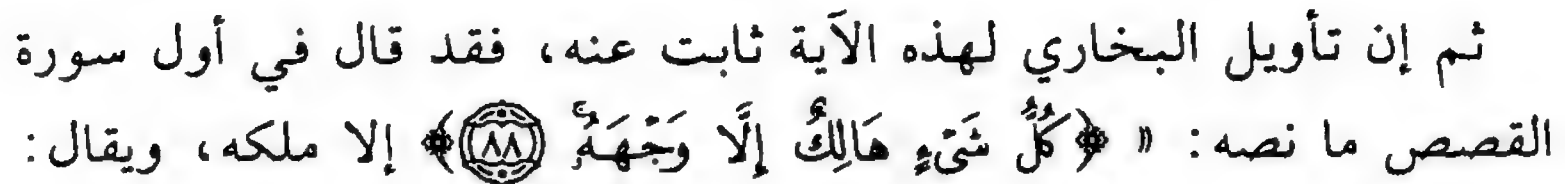 ثم إن تأويل البخاري لهذه الآية ثابت عنه، فقد قال في أول سورة
القصص ما نصه: « ﴿كُلُّ شَىْءٍ هَالِكٌ إِلَّا وَجْهَهُۥ ۝٨٨﴾ إلا ملكه، ويقال: